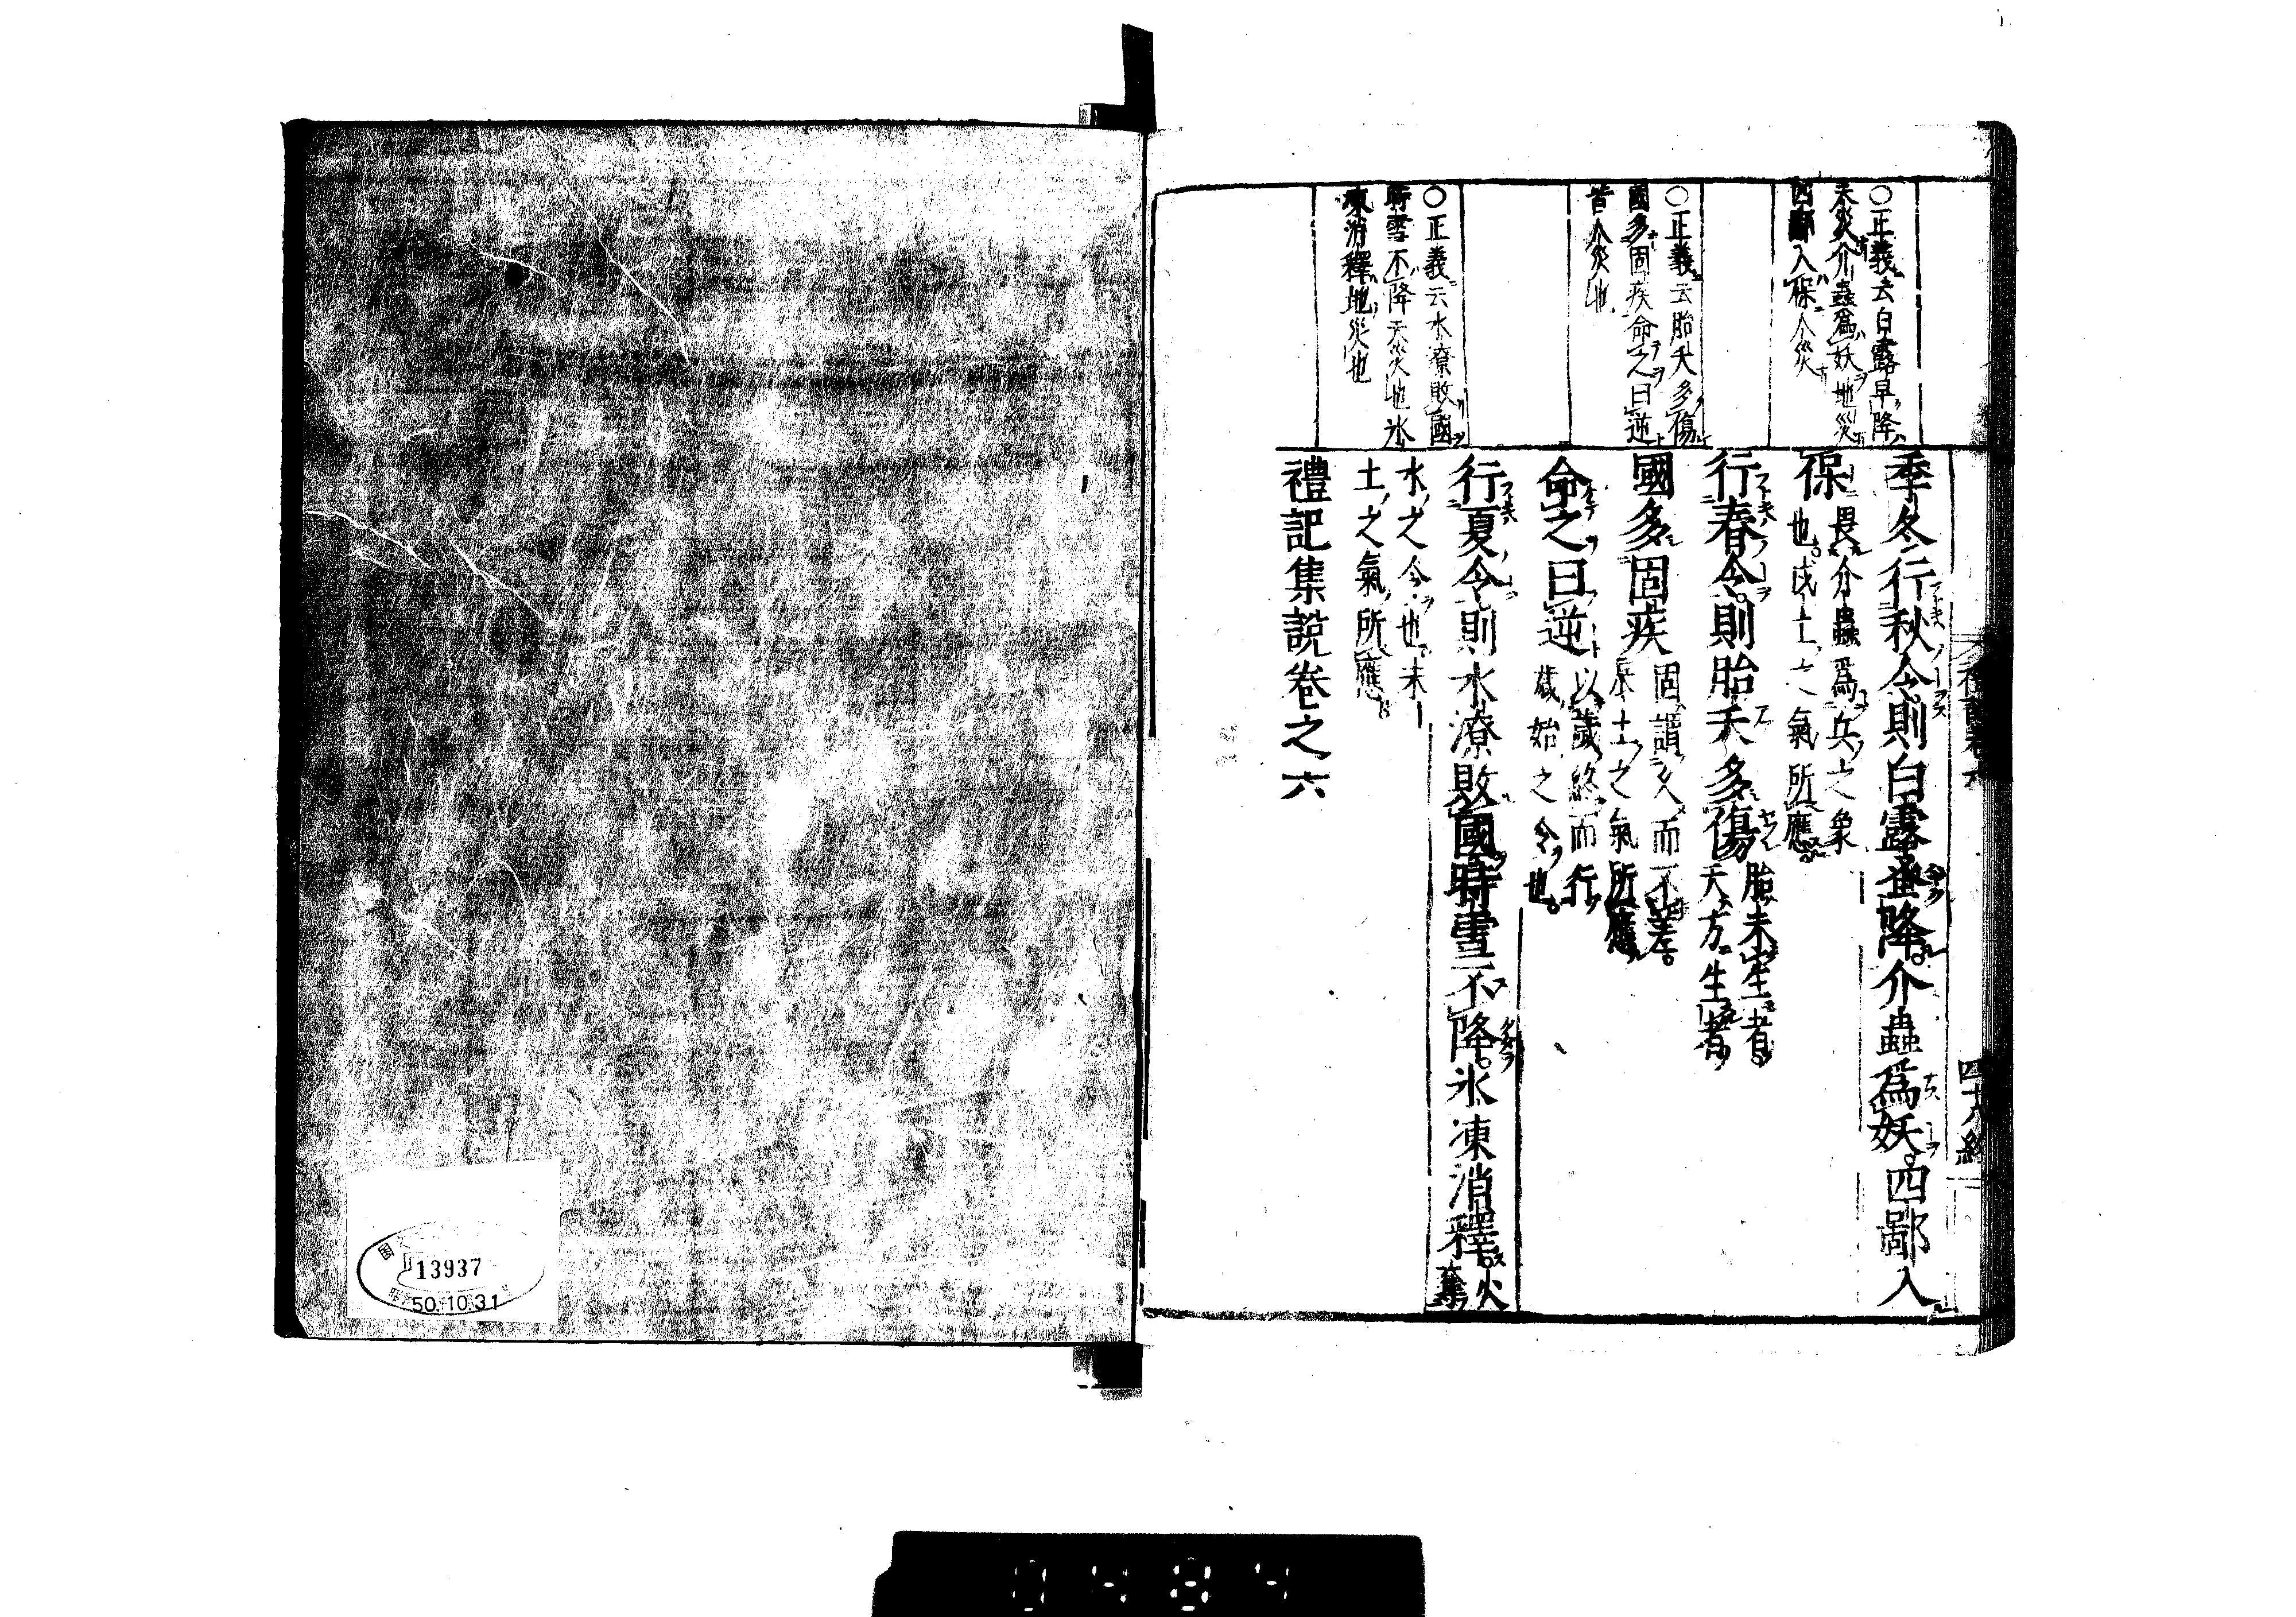 ○正義云白露早降
夫災介蟲爲妖地災
四鄙入保人災
○正義云胎夭多傷
國多固疾命之曰逆
皆人災也
○正義云水潦敗國
時雪不降天災也氷
凍消釋地災也
季冬行秋令則白露蚤降介蟲爲妖四鄙入
保
畏介蟲爲兵之象
也戌土之氣所應
行春令則胎夭多傷
胎未生者
夭方生者
國多固疾
固謂久而不差
辰土之氣所應
命之曰逆
以歲終而行
歲始之令也
行夏令則水潦敗國時雪不降氷凍消釋
火奪
水之令也未
土之氣所應
禮記集説卷之六
13937
50.10.31